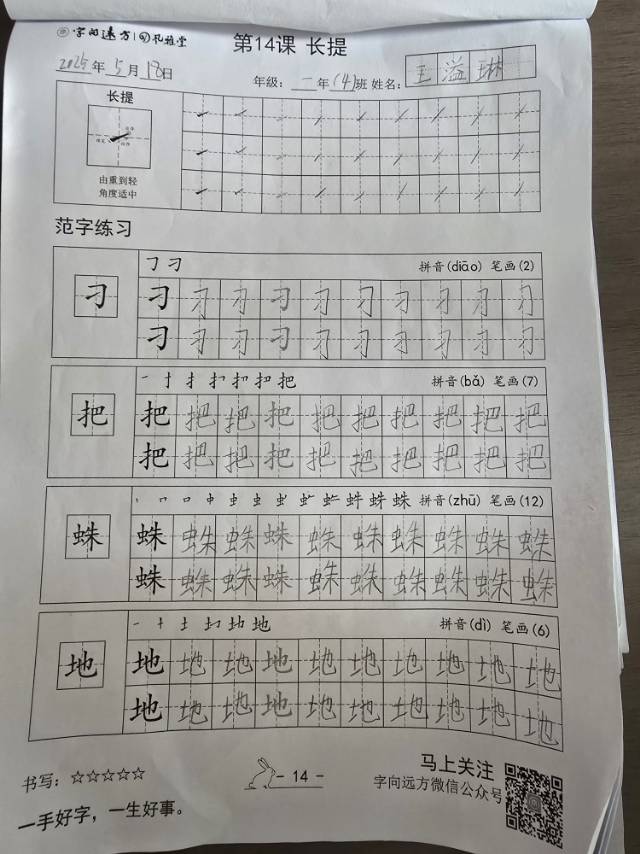 字向远方 | 礼雅堂
第14课 长提
2025年5月18日
年级：一年(4)班 姓名：王溢琳
长提
由重到轻
角度适中
范字练习
刁 拼音(diāo) 笔画(2)
刁 刁 刁 刁 刁 刁 刁 刁 刁 刁
刁 刁 刁 刁 刁 刁 刁 刁 刁 刁
把 拼音(bǎ) 笔画(7)
把 把 把 把 把 把 把 把 把 把
把 把 把 把 把 把 把 把 把 把
蛛 拼音(zhū) 笔画(12)
蛛 蛛 蛛 蛛 蛛 蛛 蛛 蛛 蛛 蛛
蛛 蛛 蛛 蛛 蛛 蛛 蛛 蛛 蛛 蛛
地 拼音(dì) 笔画(6)
地 地 地 地 地 地 地 地 地 地
地 地 地 地 地 地 地 地 地 地
书写：☆☆☆☆☆
一手好字，一生好事。
- 14 -
马上关注
字向远方微信公众号